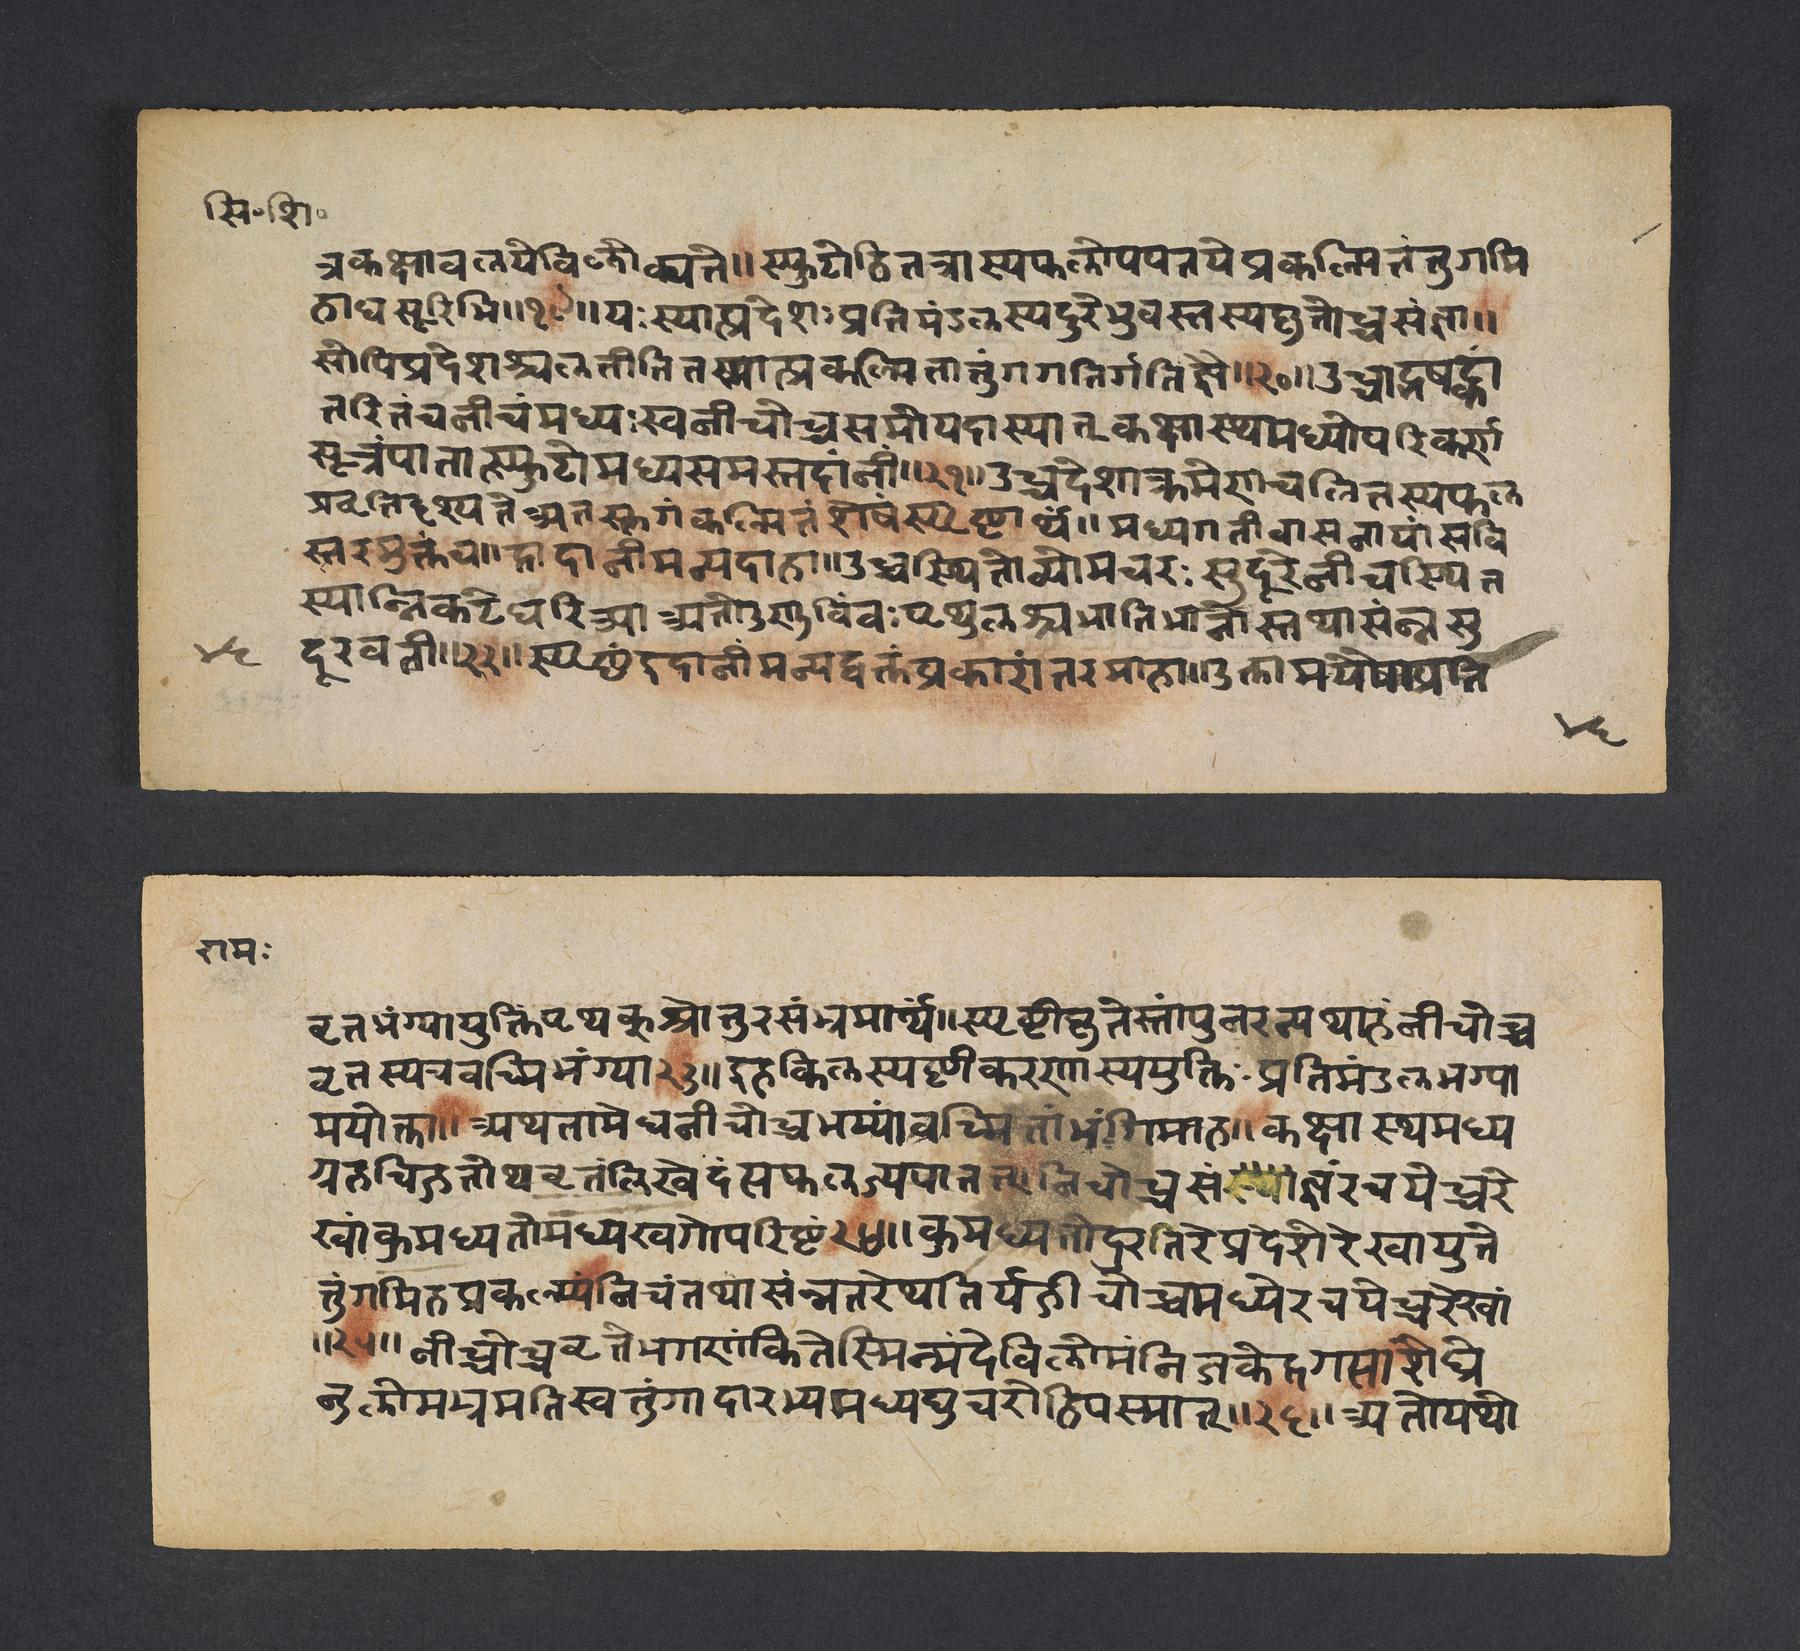 सि॰शि॰
त्रकक्षावलयेविलोक्यते॥स्फुटोहितत्रास्यफलोपपतयेप्रकल्पितंतुगमि
हाघसूरिभि॥१९॥यःस्यात्प्रदेशःप्रतिमंडलस्यदुरेभुवस्तस्यकृतोच्चसंज्ञा॥
सोपिप्रदेशश्चलतीतितस्मात्प्रकल्पितातुंगगतिर्गतिज्ञैः॥२०॥उच्चाद्भषट्कां
तरितंचनीचंमध्यःस्वनीचोच्चसमोयदास्यात्कक्षास्थमध्योपरिकर्ण
सूत्रंपातात्स्फुटोमध्यसमस्तदांनीं॥२१॥उच्चदेशात्क्रमेणचलितस्यफल
प्रवृतिदृश्यतेअतस्तुगंकल्पितंशेषंस्पष्टार्थं॥मध्यगतीवासनायांसवि
स्तरमुक्तंच॥इदानीमन्यदाह॥उच्चस्थितोव्योमचरःसुदूरेनीचस्थित
स्यान्निकटेधरित्र्याअतोऽणुविंवःपृथुलश्चभातिभानोस्तथासंन्नसु
दूरवर्ती॥२२॥स्पष्टंइदानीमन्यद्वक्तंप्रकारांतरमाह॥उक्तामयैषाप्रति
४६
४६
रामः
वृतभंग्यायुक्तिपृथक्श्रोतुरसंभ्रमार्थं॥स्पष्टीकृतेस्तांपुनरन्यथाहंनीचोच्च
वृतस्यचवच्मिभंग्या२३॥इहकिलस्पष्टीकरणस्ययुक्तिःप्रतिमंडलभग्या
मयोक्ता॥अथतामेघनीचोच्चभग्यांवच्मितांभंगिमाह॥कक्षास्थमध्य
ग्रहचिह्नतोथवृतंलिखेदंसफलज्यपातत्निचोच्चसंज्ञंरचयेच्चरे
खांकुमध्यतोमध्यखगोपरिष्टं२४॥कुमध्यतोदुरतरेप्रदेशेरेखायुते
तुंगमिहप्रकल्प्यंनिचंतथासंन्नतरेथतिर्यङीचोच्चमध्येरचयेच्चरेखां
॥२५॥नीच्चोच्चवृतेभगणांकितेस्मिन्मंदेविलोमंनिजकेंद्रगसाशेघ्रे
नुलोमभ्रमतिस्वतुंगादारभ्यमध्यद्युचरोहियस्मात्॥२६॥अतोयथो